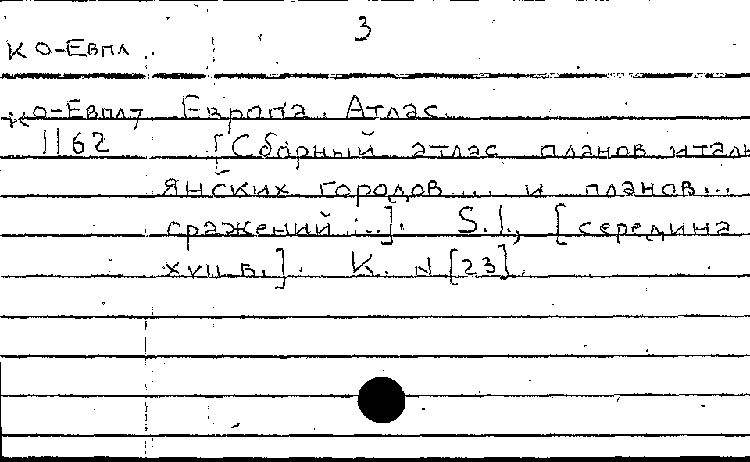 3
К О-Евпл
К О-Евпл7 Европа. Атлас.
1162 [Сборный атлас планов италь
янских городов ... и планов...
сражений ...]. S.l., [середина
XVII в.]. К. N [23].